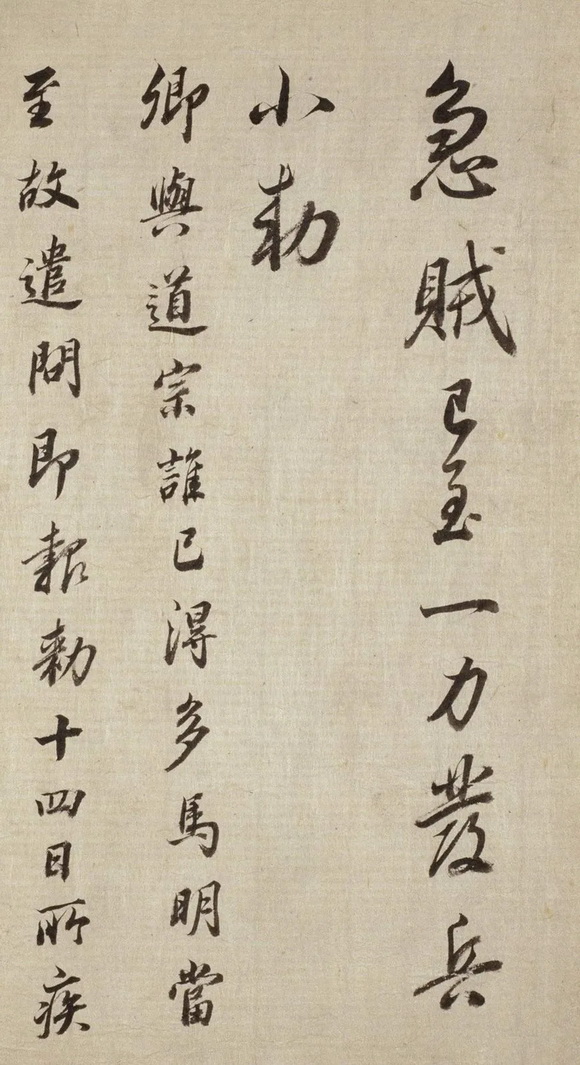 急賊已至一力發兵
小勑
卿與道宗誰已得多馬明當
至故遣問即報勑十四日所疾